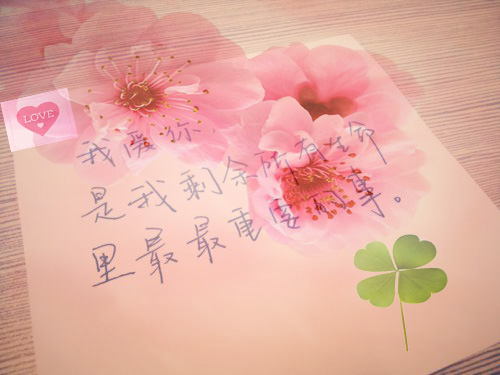 LOVE
我爱你,
是我剩余所有生命
里最最重要的事。